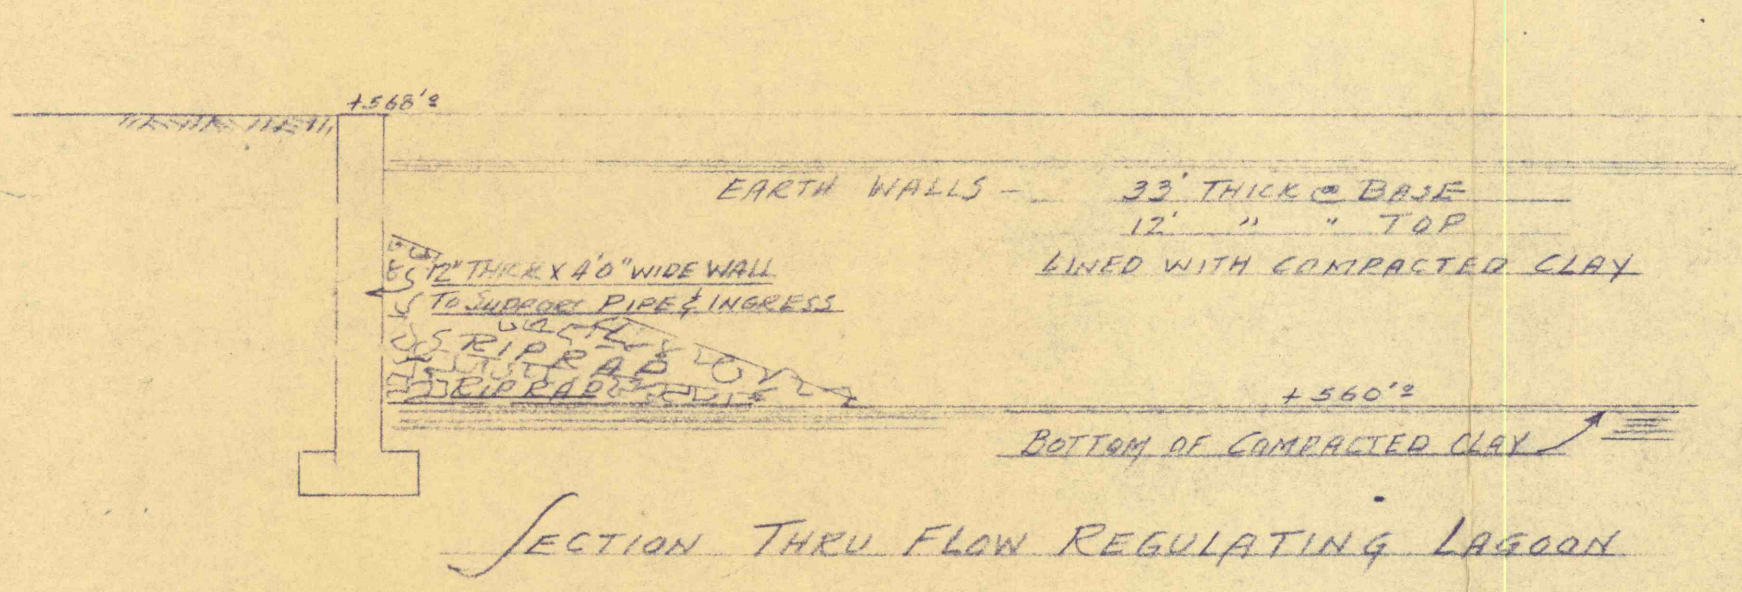 +568'0
EARTH WALLS - 33' THICK @ BASE
12' " " TOP
LINED WITH COMPACTED CLAY
12" THICK X 4'0" WIDE WALL
TO SUPPORT PIPE & INGRESS
RIP RAP
RIP RAP
+560'0
BOTTOM OF COMPACTED CLAY
SECTION THRU FLOW REGULATING LAGOON